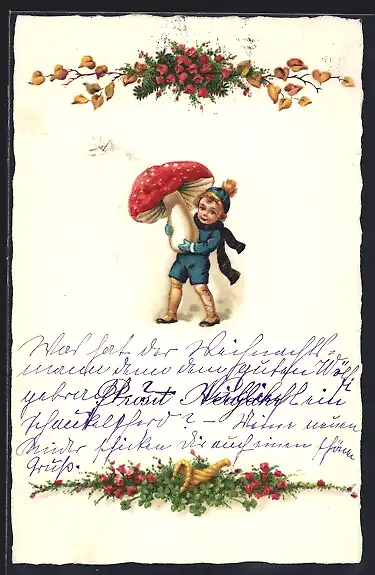 Was hat der Weihnachts-
mann denn dem guten
gebracht? ein
Schaukelpferd? – Meine neuen
Kinder schicken Dir auch einen schönen
Gruß.